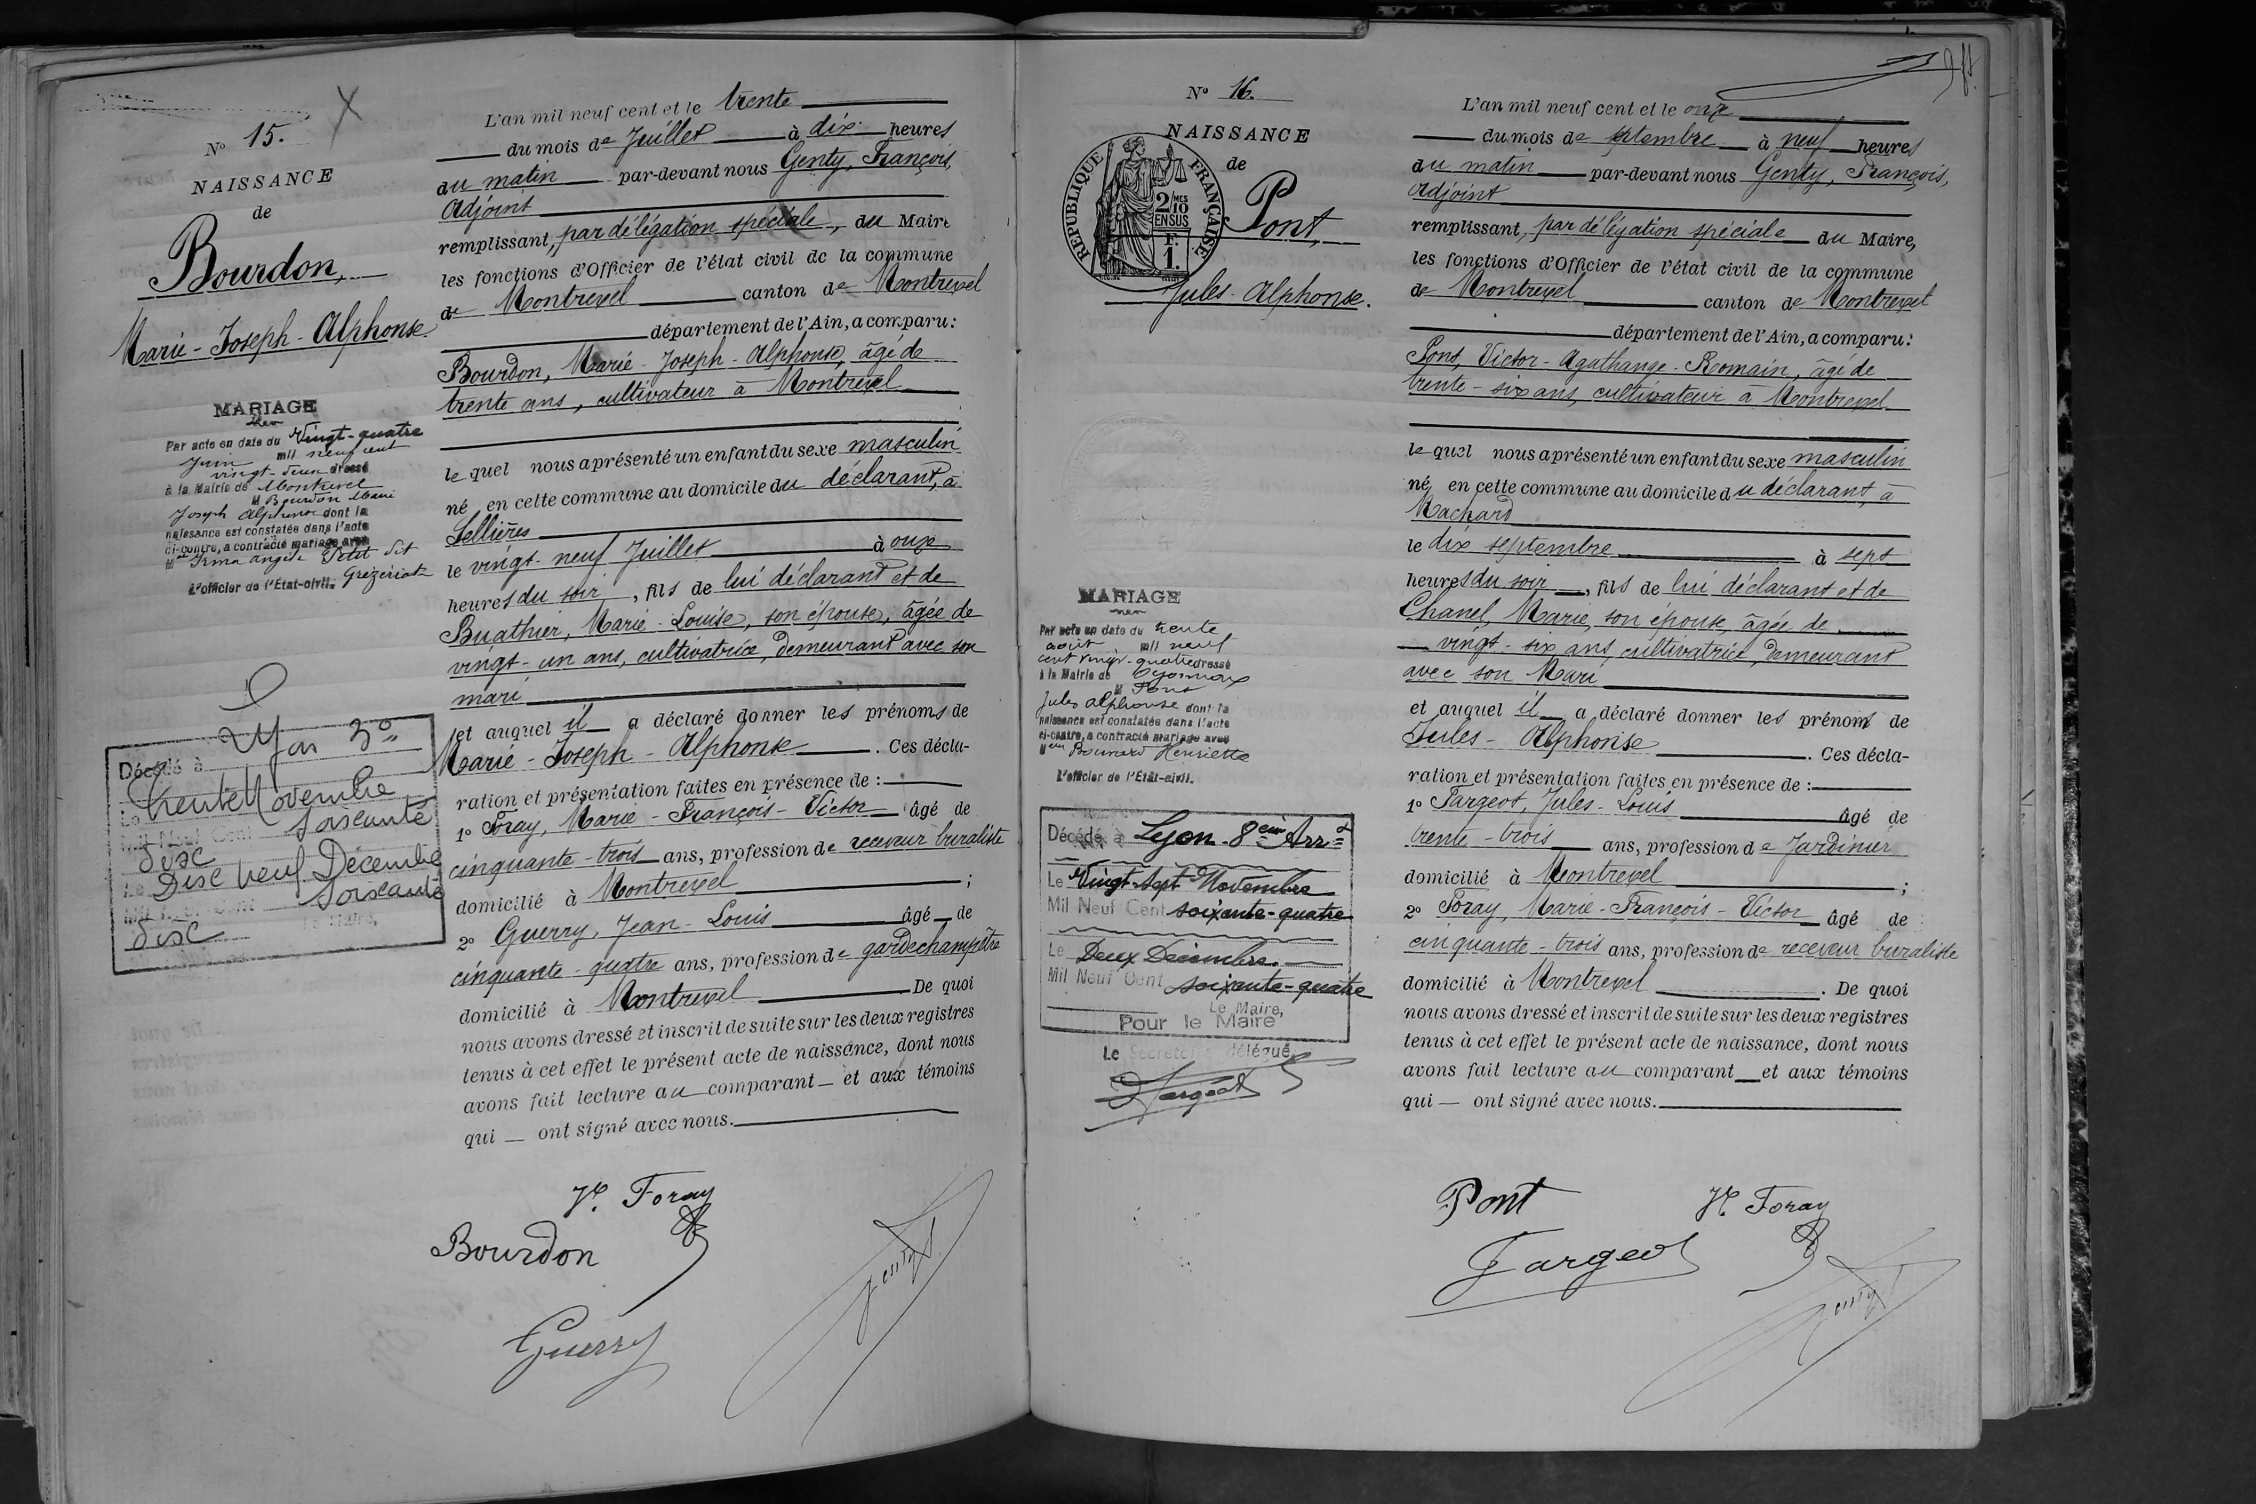 N° 15.
NAISSANCE
de
Bourdon,
Marie-Joseph-Alphonse
MARIAGE
Par acte en date du Vingt-quatre
Juin mil neuf cent
vingt-deux dressé
à la Mairie de Montrevel
M Bourdon Marie
Joseph Alphonse dont la
naissance est constatée dans l'acte
ci-contre, a contracté mariage avec
Irma Angèle Petit dit
L'officier de l'État-civil. Grézériat
Décédé à Lyon 3e
Le trente Novembre
Mil Neuf Cent soixante
disc
Le Disc neuf Décembre
Mil Neuf Cent soixante
disc
L'an mil neuf cent et le trente
du mois de Juillet à dix heures
du matin par-devant nous Genty, François,
Adjoint
remplissant, par délégation spéciale, du Maire
les fonctions d'Officier de l'état civil de la commune
de Montrevel canton de Montrevel
département de l'Ain, a comparu:
Bourdon, Marie-Joseph-Alphonse, âgé de
trente ans, cultivateur à Montrevel
lequel nous a présenté un enfant du sexe masculin
né en cette commune au domicile du déclarant, à
Sellières
le vingt-neuf Juillet à onze
heures du soir, fils de lui déclarant et de
Buathier, Marie-Louise, son épouse, âgée de
vingt-un ans, cultivatrice, demeurant avec son
mari
et auquel il a déclaré donner les prénoms de
Marie-Joseph-Alphonse. Ces décla-
ration et présentation faites en présence de:
1° Foray, Marie-François-Victor âgé de
cinquante-trois ans, profession de receveur buraliste
domicilié à Montrevel;
2° Guerry, Jean-Louis âgé de
cinquante-quatre ans, profession de garde champêtre
domicilié à Montrevel De quoi
nous avons dressé et inscrit de suite sur les deux registres
tenus à cet effet le présent acte de naissance, dont nous
avons fait lecture au comparant et aux témoins
qui ont signé avec nous.
Vr. Foray
Bourdon
Genty
Guerry
N° 16.
NAISSANCE
de
Pont,
Jules-Alphonse.
RÉPUBLIQUE FRANÇAISE
2 MES
10
EN SUS
F.
1.
MARIAGE
Par acte en date du trente
août mil neuf
cent vingt-quatre dressé
à la Mairie de Oyonnax
M Pont
Jules Alphonse dont la
naissance est constatée dans l'acte
ci-contre, a contracté mariage avec
Melle Bouvard Henriette
L'officier de l'État-civil.
Décédé à Lyon-8em Arrt
Le Vingt Sept Novembre
Mil Neuf Cent soixante-quatre
Le Deux Décembre.
Mil Neuf Cent soixante-quatre
Le Maire,
Pour le Maire
Le Secrétaire délégué
L'an mil neuf cent et le onze
du mois de septembre à neuf heures
du matin par-devant nous Genty, François,
Adjoint
remplissant, par délégation spéciale du Maire,
les fonctions d'Officier de l'état civil de la commune
de Montrevel canton de Montrevel
département de l'Ain, a comparu:
Pont, Victor-Agathange-Romain, âgé de
trente-six ans, cultivateur à Montrevel
lequel nous a présenté un enfant du sexe masculin
né en cette commune au domicile du déclarant, à
Machard
le dix septembre à sept
heures du soir, fils de lui déclarant et de
Chanel, Marie, son épouse, âgée de
vingt-six ans, cultivatrice, demeurant
avec son Mari
et auquel il a déclaré donner les prénoms de
Jules-Alphonse. Ces décla-
ration et présentation faites en présence de:
1° Fargeot, Jules-Louis âgé de
trente-trois ans, profession de Jardinier
domicilié à Montrevel;
2° Foray, Marie-François-Victor âgé de
cinquante-trois ans, profession de receveur buraliste
domicilié à Montrevel. De quoi
nous avons dressé et inscrit de suite sur les deux registres
tenus à cet effet le présent acte de naissance, dont nous
avons fait lecture au comparant et aux témoins
qui — ont signé avec nous.
Pont
Vr. Foray
Fargeot
Genty